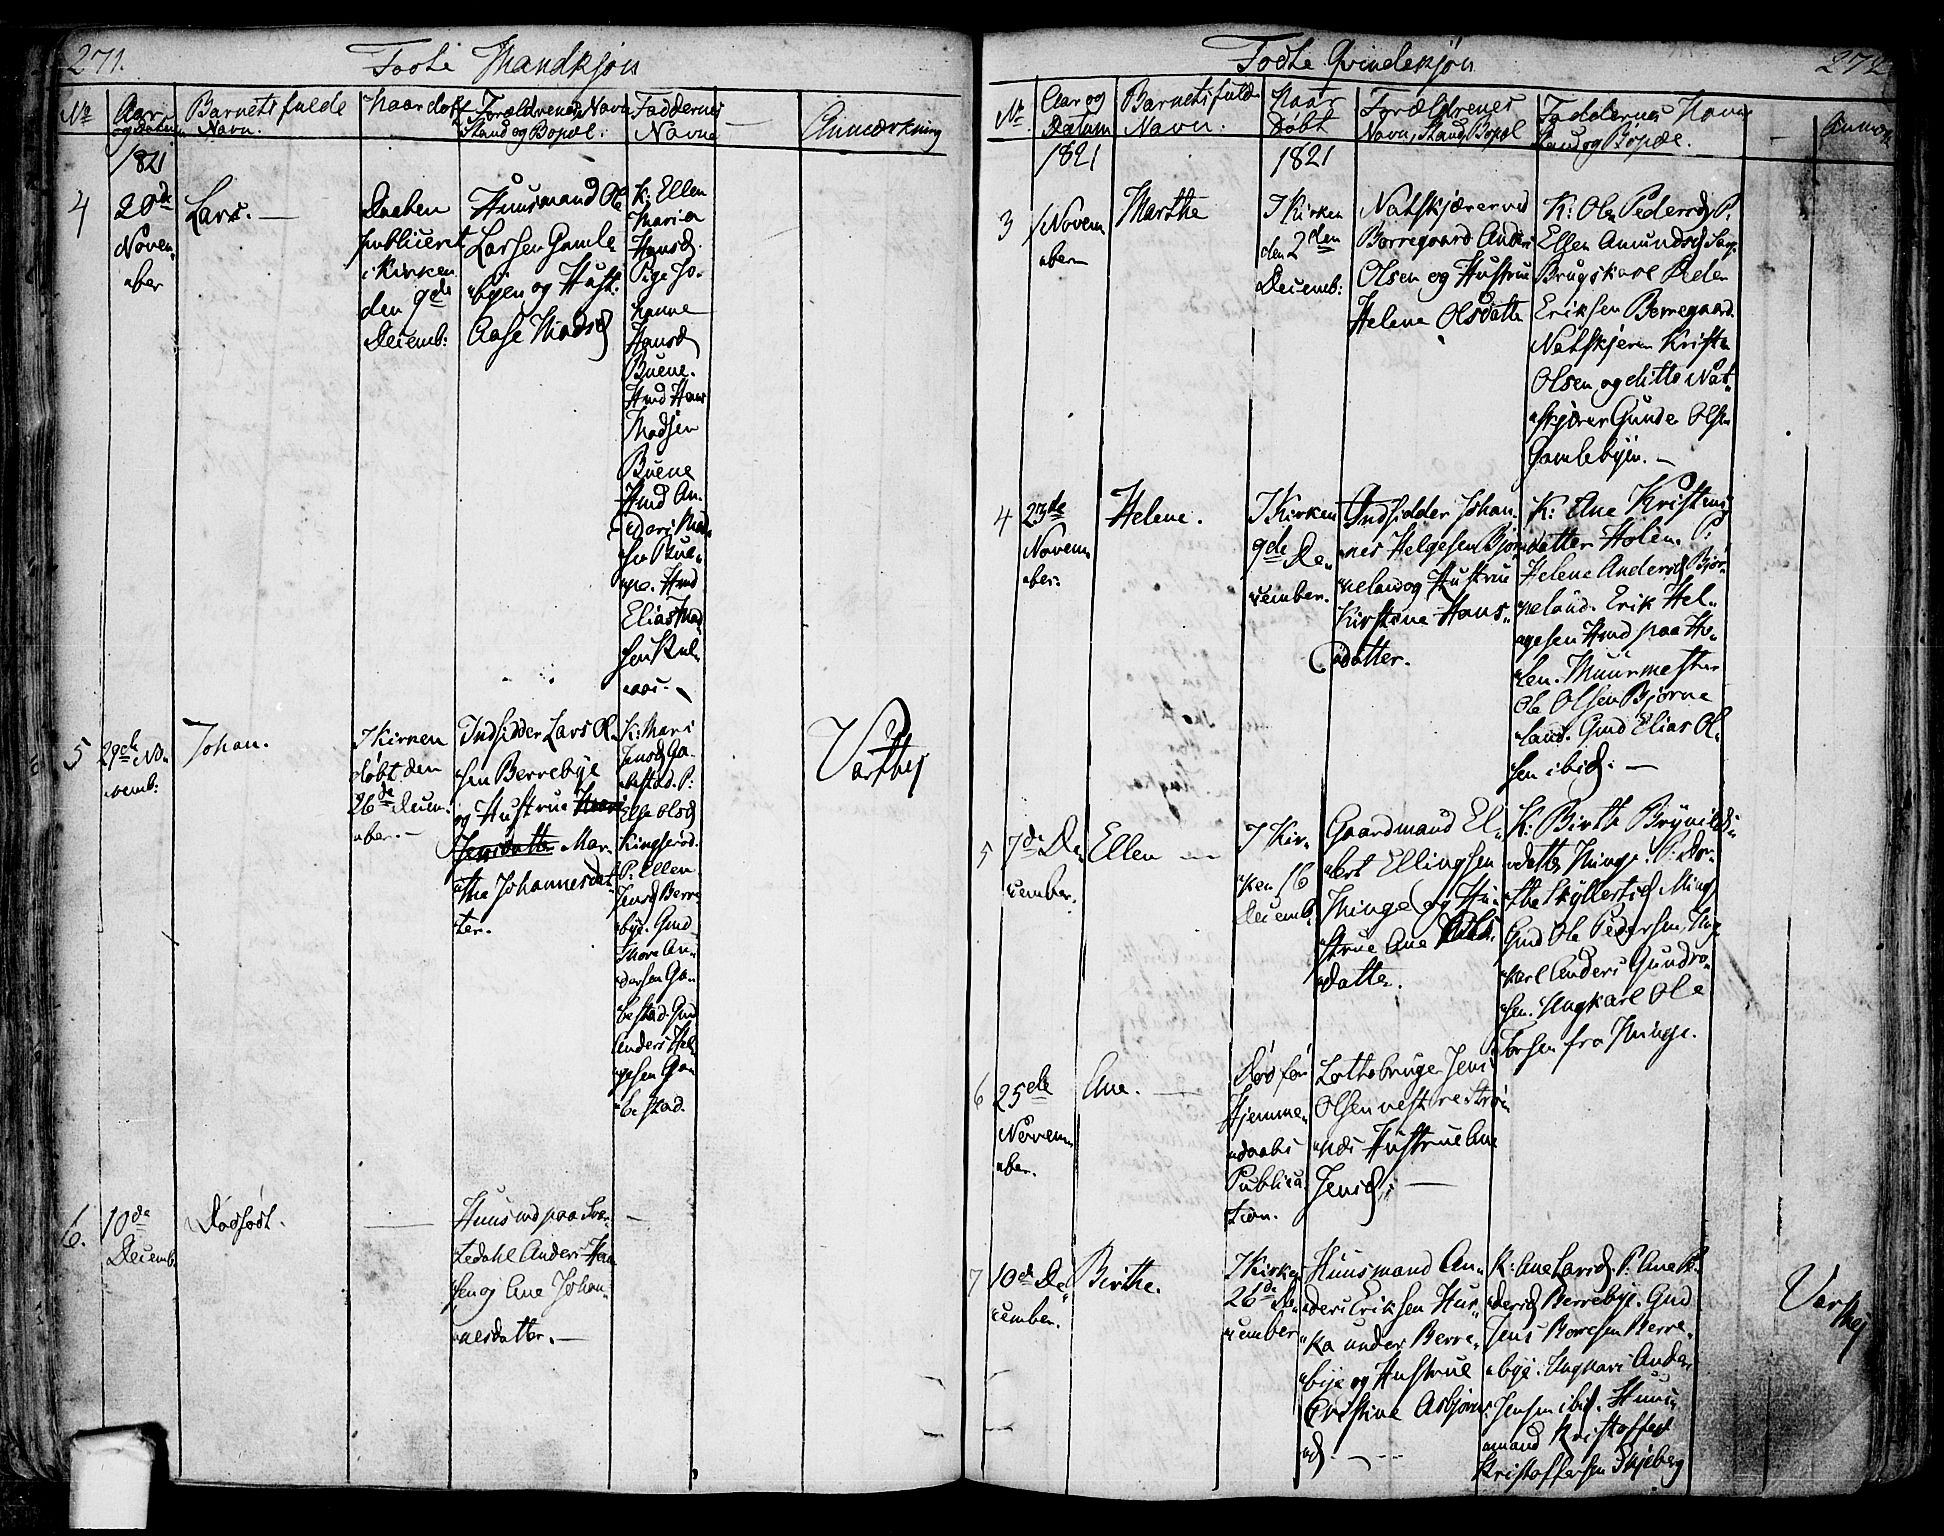 271.
Födte Mandkjön
No
Aar og Datum
Barnets fulde Navn.
Naar döbt
Forældrenes Navn Stand og Bopæl:
Faddernes Navne
Anmærkning
1821
4
20de Novem-
ber
Lars. —
Daaben
publiceret
i Kirken
den 9de
Decemb:
Huusmand Ole
Larsen Gamle
byen og Hust:
Aase Madsd
K: Ellen
Maria
Hansd.
Pige Jo-
hanne
Hansd
Buene.
Hmd Hans
Madsen
Buene
Hmd An-
ders Mad-
sen Bue-
ne. Hmd
Elias Mad-
sen
5
29de No-
vemb:
Johan.
I Kirken
döbt den
26de Decem-
ber. —
Indsidder Lars Ol-
sen Berrebye
og Hustrue
Jensdatter Mar-
the Johannesdat-
ter.
K: Mari
Jensd Ga-
bestad. P:
Else Olsd
Kingseröd.
P: Ellen
Jensd Berre
bye. Gmd
Thore An-
dersen Ga-
bestad. Gmd
Anders Hel-
gesen Ga-
bestad.
Varthej
6.
10de
Decemb
Dödfödt.
Huusmd paa Sva-
tedahl Anders Han
sen og Ane Johan-
nesdatter. —
—
Födte Qvindekjön
272
No
Aar og Datum
Barnets fulde Navn.
Naar Döbt
Forældrenes Navn, Stand, Bopæl
Faddernes Navn Stand og Bopæl.
Anmærk
1821
1821
3
1 Novem
ber
Marthe
I Kirken
den 2den
Decemb:
Natskjærer ved
Borregaard Anders
Olsen og Hustrue
Helene Olsdatte
K: Ole Pedersd P.
Ellen Amundsd Sag-
Brugskarl Peder
Eriksen Borregaard.
Natskjerer Kriste
Olsen og ditto Nat-
skjærer Gunder Olsen
Gamlebyen. —
4
23de
Novem
ber.
Helene.
I Kirken
9de De-
cember.
Indsidder Johan-
nes Helgesen Björ
neland og Hustrue
Kirstine Hans-
datter.
K: Ane Kristens
datter Holen. P:
Helene Andersd Björ-
neland. Erik Hel-
gesen Hmd paa Ho-
len. Muurmester
Ole Olsen Björne
land. Gmd Elias Ol-
sen ibid. —
5
7de De-
cember.
Ellen —
I Kir-
ken 16
Decemb.
Gaardmand El-
lert Ellingsen
Minge og Hu-
strue Ane
datter.
K: Birthe Brynilds-
datter Minge. P: Dor-
the Skyllertsd Ming
Gmd Ole Pedersen, Ung-
karl Anders Gundro-
sen. Ungkarl Ole
Torsen fra Minge.
6
25de
Novem
ber.
Ane. —
Död för
Hjemme-
daabs
Publica-
tion.
Lottebruger Jens
Olsen vestre Strö-
nes Hustrue Ane
Jensd. —
7
10de De-
cember.
Birthe.
I Kirken
26de De-
cember
Huusmand An-
ders Eriksen Hus-
ka under Berre-
bye og Hustrue
Christine Asbjörns
d. —
K: Ane Larsd. P: Ane P-
dersd Berrebye. Gmd
Jens Borresen Berre-
bye. Ungkarl Anders
Jensen ibid. Huus-
mand Kristoffer
Kristoffersen Skjeberg
Varthej